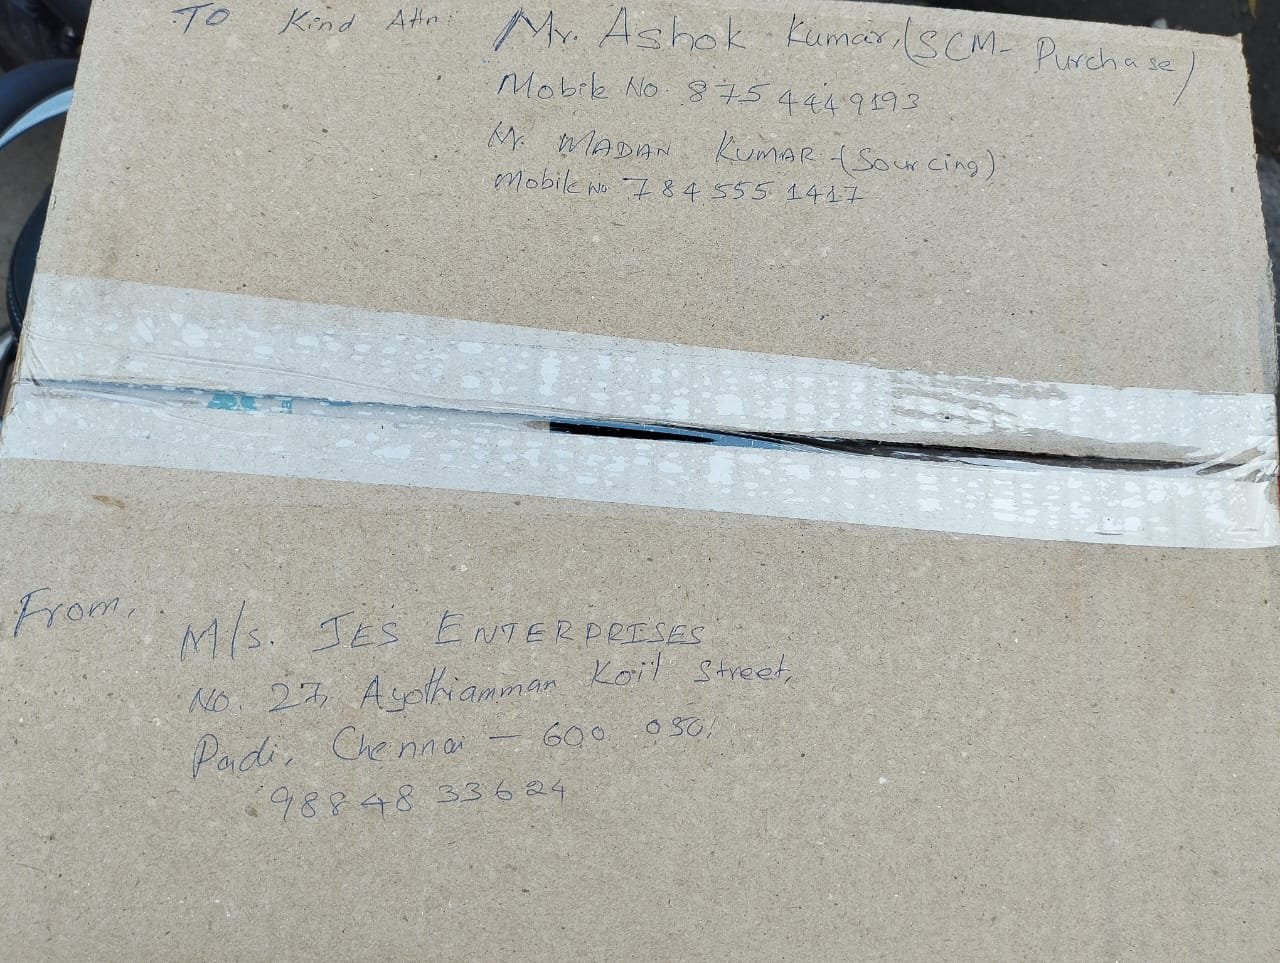 TO Kind Attn: Mr. Ashok Kumar, (SCM- Purchase)
Mobile No. 875 444 9193
Mr. MADAN KUMAR - (Sourcing)
Mobile No 784 555 1417
From,
M/s. JES ENTERPRISES
No. 27, Ayothiamman Koil Street,
Padi, Chennai - 600 050.
98848 33624